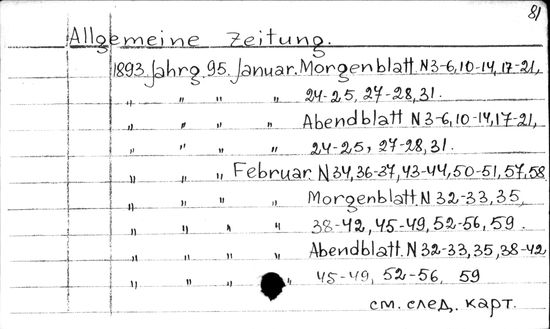 81
Allgemeine Zeitung.
1893. Jahrg. 95. Januar. Morgenblatt. N 3-6, 10-14, 17-21,
" " " " 24-25, 27-28, 31.
" " " " Abendblatt N 3-6, 10-14, 17-21,
" " " " 24-25, 27-28, 31.
" " " Februar. N 34, 36-37, 43-44, 50-51, 57, 58
" " " " Morgenblatt. N 32-33, 35,
" " " " 38-42, 45-49, 52-56, 59.
" " " " Abendblatt. N 32-33, 35, 38-42
" " " " 45-49, 52-56, 59
см. след. карт.